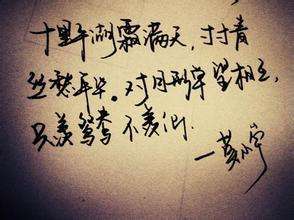 十里平湖霜满天，寸寸青
丝愁年华。对月形单望相互，
只羡鸳鸯不羡仙。
一黄小宇